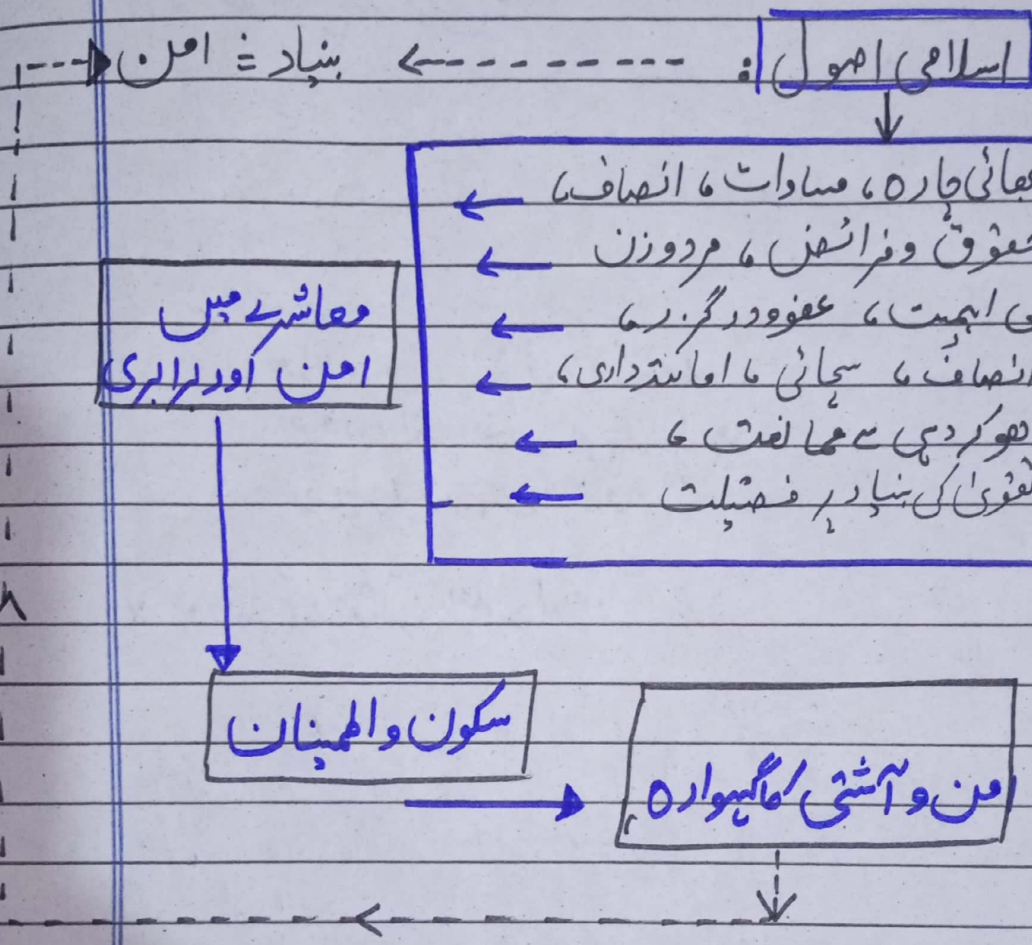 اسلامی اصول : بنیاد = امن
بھائی چارہ، مساوات، انصاف،
حقوق و فرائض، مردوزن
کی اہمیت، عفوودرگزر،
انصاف، سچائی، امانتداری،
دھوکہ دہی سے ممانعت،
تقویٰ کی بنیاد پر فضیلت
معاشرے میں
امن اور برابری
سکون و اطمینان
امن و آشتی کا گہوارہ